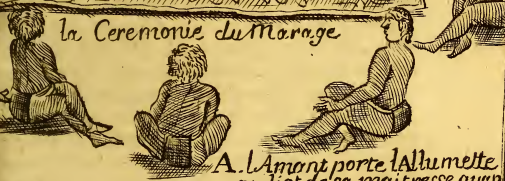 la Ceremonie du Marage
A. l Amant porte lAllumette
de sa maitresse